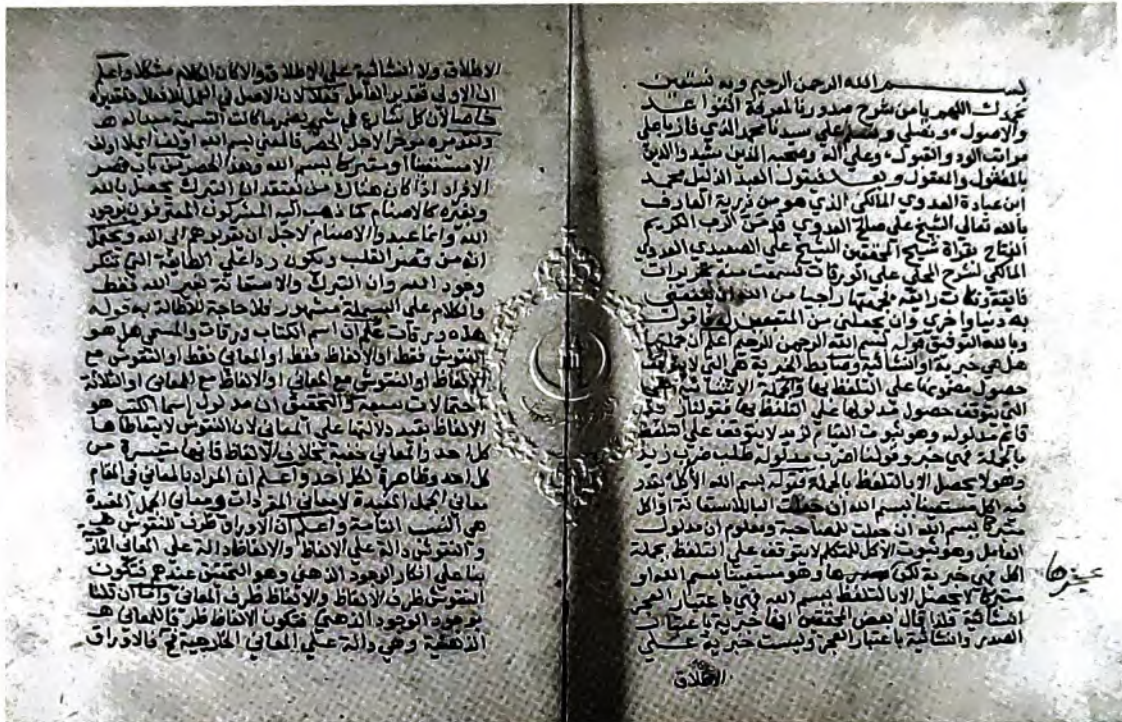 بسم الله الرحمن الرحيم وبه نستعين
نحمدك اللهم يا من شرح صدورنا لمعرفة القواعد
والاصول ونصلي ونسلم على سيدنا محمد الذي فاز باعلى
مراتب الود والقبول وعلى آله وصحبه الذين شيدوا الدين
بالمنقول والمعقول وبعد فيقول العبد الذليل محمد
ابن عبادة العدوي المالكي الذي هو من ذرية العارف
بالله تعالى الشيخ علي صالح العدوي قد من الرب الكريم
الفتاح بقراة شيخ المحققين الشيخ علي الصعيدي العدوي
المالكي لشرح المحلي على الورقات فسمعت منه تقريرات
فايقة ونكات رايقة فجمعتها راجيا من الله ان ينفعني
به دنيا واخرى وان يجعلني من المتبعين فاقول
وبالله التوفيق قوله بسم الله الرحمن الرحيم اعلم ان جملتها
هل هي خبرية او انشائية وضابط الخبرية هي التي لا يتوقف
حصول مضمونها على التلفظ بها والجملة الانشائية هي
التي يتوقف حصول مدلولها على التلفظ بها فقولنا زيد
قايم مدلوله وهو ثبوت القيام لزيد لا يتوقف على التلفظ
بالجملة فهي خبر وقولنا اضرب مدلوله طلب ضرب زيد
وهو لا يحصل الا بالتلفظ بالجملة قوله بسم الله الاكل نقدر
فيه اكل مستعينا بسم الله ان جعلت الباء للاستعانة او اكل
متبركا بسم الله ان جعلت للمصاحبة ومعلوم ان مدلول
العامل وهو ثبوت الاكل للمتكلم لا يتوقف على التلفظ بجملة
اكل فهي خبرية لكن وهو مستعينا بسم الله او
متبركا لا يحصل الا بالتلفظ ببسم الله فهي باعتبار العجز
انشائية فلذا قال بعض المحققين انها خبرية باعتبار
الصدر وانشائية باعتبار العجز وليست خبرية على
الاطلاق
عجزها
الاطلاق ولا انشائية على الاطلاق والا كان الكلام مشكلا واعلم
ان الاولى تقدير العامل فعلا لان الاصل في العمل للافعال وتقديره
خاصا لان كل شارع في شيء يضمر ما كانت التسمية مبدا له
وتقديره موخرا لاجل الحصر فالمعنى بسم الله اولف
الاستعنا او متبركا بسم الله وهذا الحصر من باب قصر
الافراد اذا كان هناك من يعتقد ان التبرك يحصل بالله
وبغيره كالاصنام كما ذهب اليه المشركون المعترفون بوجود
الله وانما عبدوا الاصنام لاجل ان يقربوهم الى الله ويحتمل
انه من قصر القلب ويكون ردا على الطايفة التي تنكر
وجود الله وان التبرك والاستعانة بغير الله فقط
والكلام على البسملة مشهور فلا حاجة للاطالة به قوله
هذه ورقات علم ان اسم الكتاب ورقات والمسمى هل هو
النقوش فقط او الالفاظ فقط او المعاني فقط او النقوش مع
الالفاظ او النقوش مع المعاني او الالفاظ مع المعاني او الثلاثة
احتمالات سبعة والتحقيق ان مدلول اسما الكتب هو
الالفاظ بقيد دلالتها على المعاني لان النقوش لا يتعاطاها
كل احد والمعاني خفية بخلاف الالفاظ فانها متيسرة من
كل احد وظاهرة لكل احد واعلم ان المراد بالمعاني في المقام
معاني الجمل المفيدة لا معاني المفردات ومعاني الجمل المفيدة
هي النسب التامة واعلم ان الاوراق ظرف للنقوش
والنقوش دالة على الالفاظ والالفاظ دالة على المعاني
بناء على انكار الوجود الذهني وهو التحقيق عندهم فتكون
النقوش ظرف الالفاظ والالفاظ ظرف المعاني واما ان قلنا
بوجود الوجود الذهني فتكون الالفاظ ظرفا للمعاني
الذهنية وهي دالة على المعاني الخارجية فالاوراق